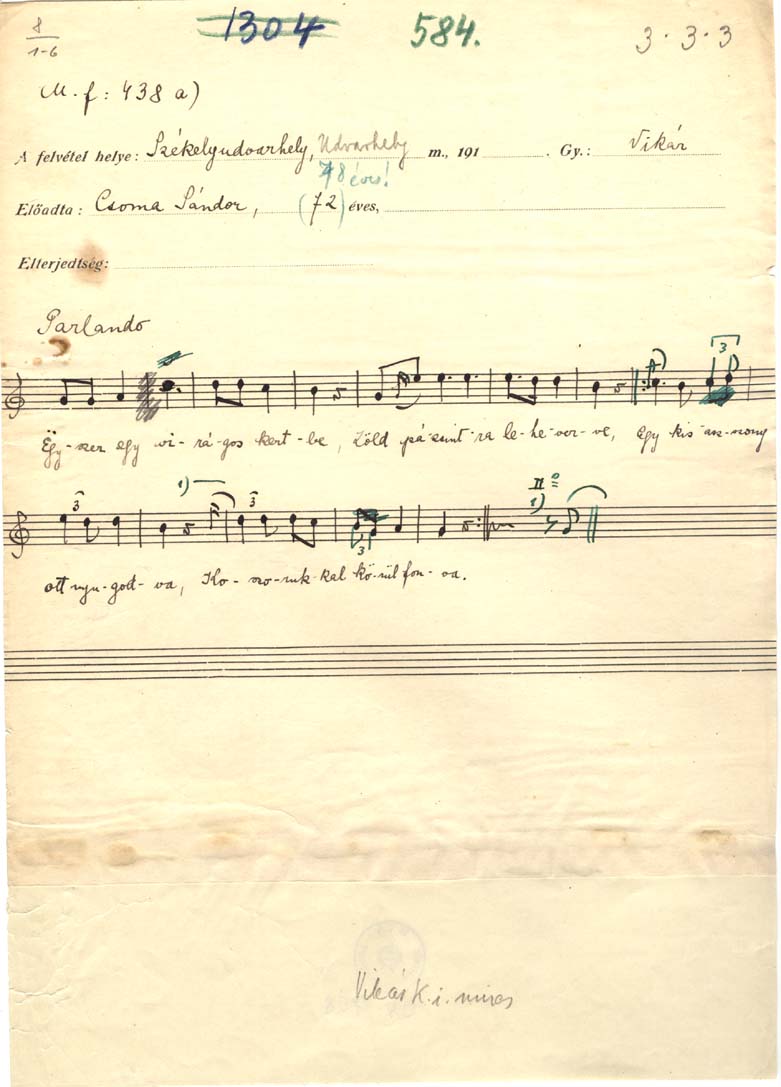 8
1-6
1304
584.
3 · 3 · 3
M. f : 438 a)
A felvétel helye: Székelyudvarhely, Udvarhely m., 191 . Gy.: Vikár
78 éves!
Előadta : Csoma Sándor, (72) éves,
Elterjedtség:
Parlando
3
Egy-szer egy vi-rá-gos kert-be, Zöld pá-zsint-ra le-he-ver-ve, egy kis asz-szony
3 1) 3 3 II 1)
ott nyu-godt-va, Ko-szo-ruk-kal kö-rül fon-va.
Vikár